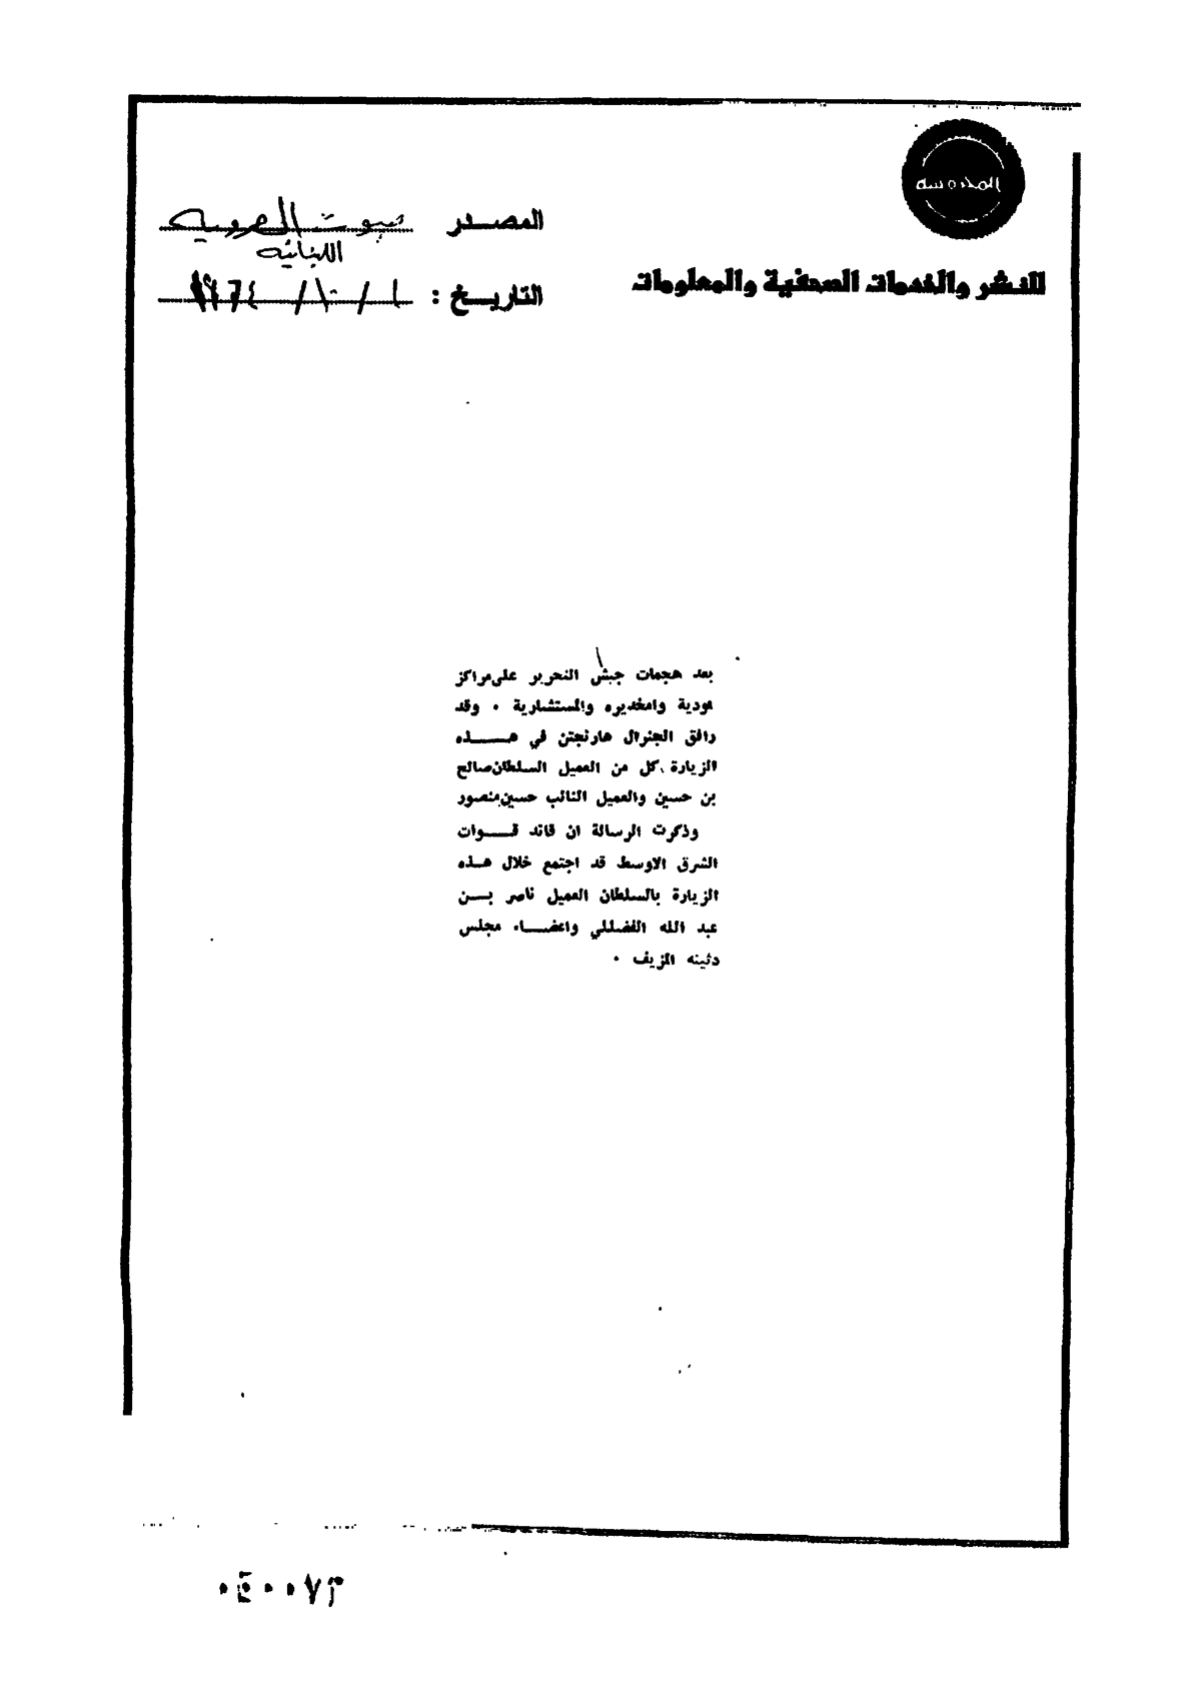 المحروسة
للنشر والخدمات الصحفية والمعلومات
المصدر بيروت العروبه
اللبنانيه
التاريخ : ١ / ١٠ / ١٩٦٤
بعد هجمات جيش التحرير على مراكز
مودية وامغديره والمستشارية . وقد
رافق الجنرال هارنجتن في هـــذه
الزيارة كل من العميل السلطان صالح
بن حسين والعميل النائب حسين منصور
وذكرت الرسالة ان قائد قــوات
الشرق الاوسط قد اجتمع خلال هـذه
الزيارة بالسلطان العميل ناصر بــن
عبد الله الفضلي واعضــاء مجلس
دثينه المزيف .